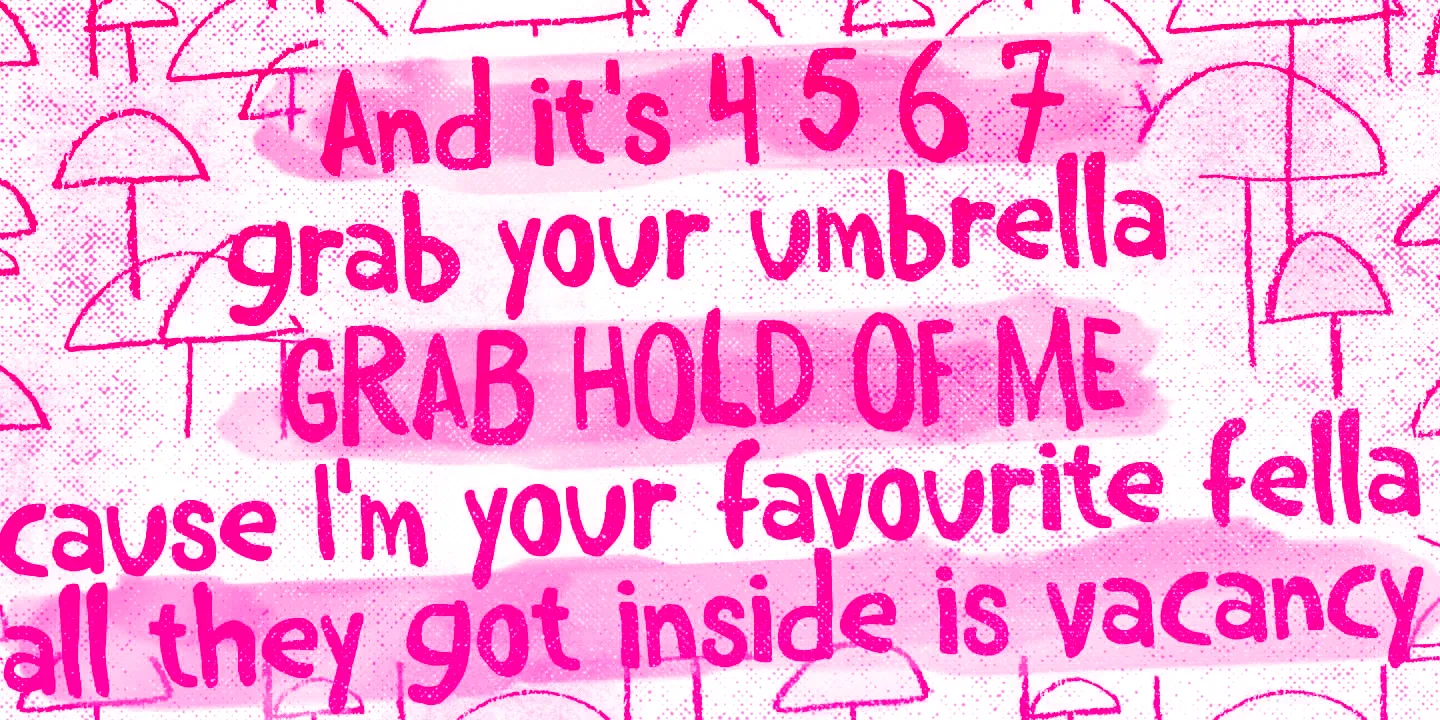 And it's 4 5 6 7
grab your umbrella
GRAB HOLD OF ME
cause I'm your favourite fella
all they got inside is vacancy